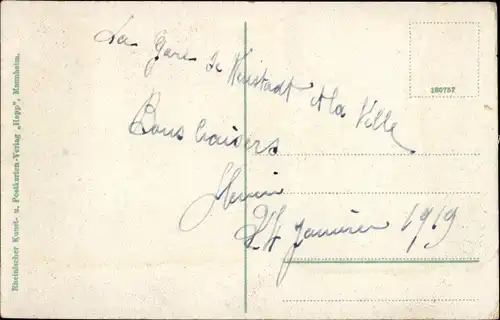 La Gare de Neustadt et la Ville
Bons baisers
24 Janvier 1919
180757
Rheinischer Kunst- u. Postkarten-Verlag „Hepp", Mannheim.